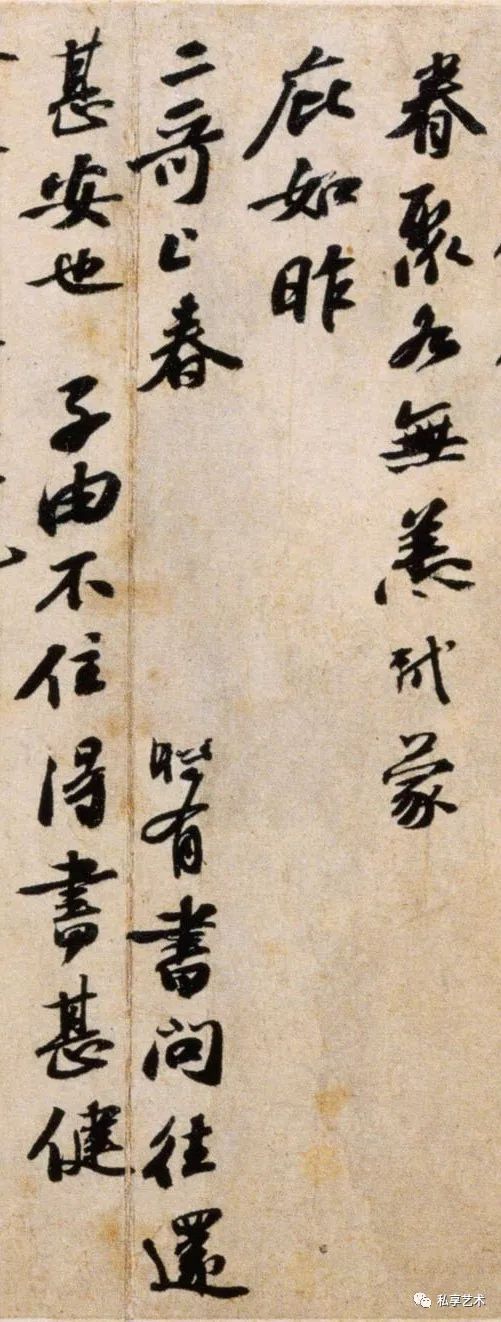 眷聚各無恙軾蒙
庇如昨
二哥上春 時有書問往還
甚安也 子由不住得書甚健
私享艺术